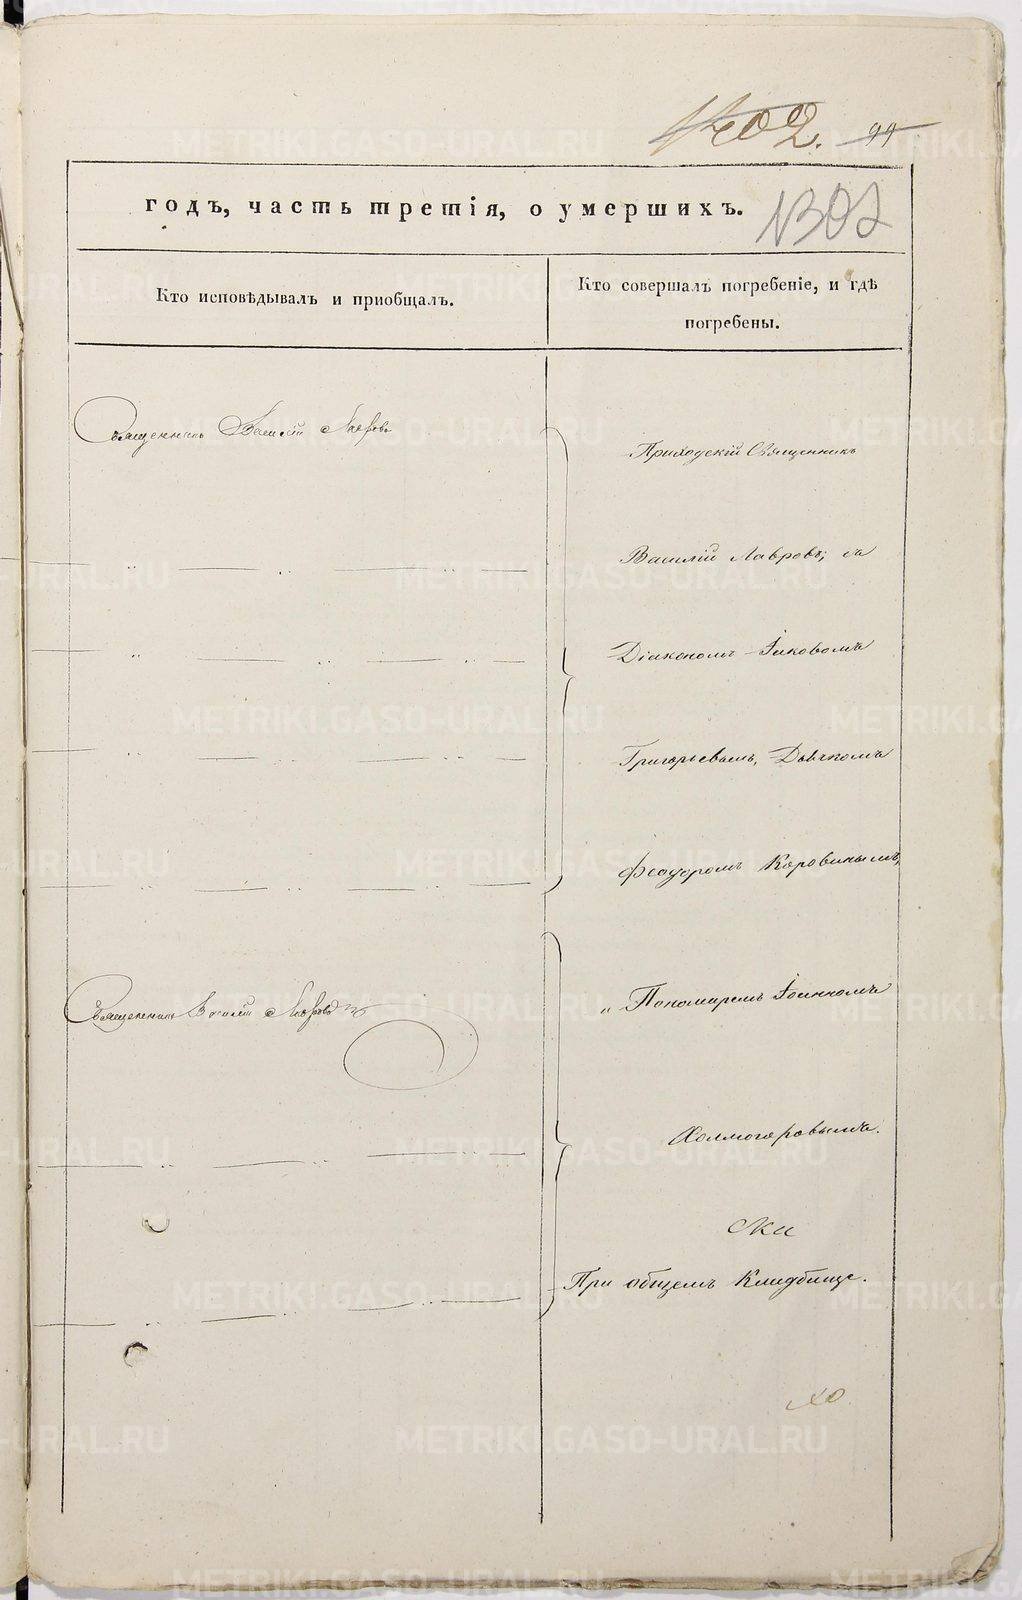 1302. 99
годъ, часть третія, о умершихъ. 1302
Кто исповѣдывалъ и пріобщалъ.
Кто совершалъ погребеніе, и гдѣ
погребены.
Священникъ Василій Лавровъ
Приходскій Священникъ
Василій Лавровъ, съ
Діакономъ Іаковомъ
Григорьевымъ, Дьячкомъ
Феодоромъ Коровинымъ,
Священникъ Василій Лавровъ
„ Пономаремъ Іоанномъ
Холмогоровымъ.
На
При общемъ Кладбище.
METRIKI.GASO-URAL.RU